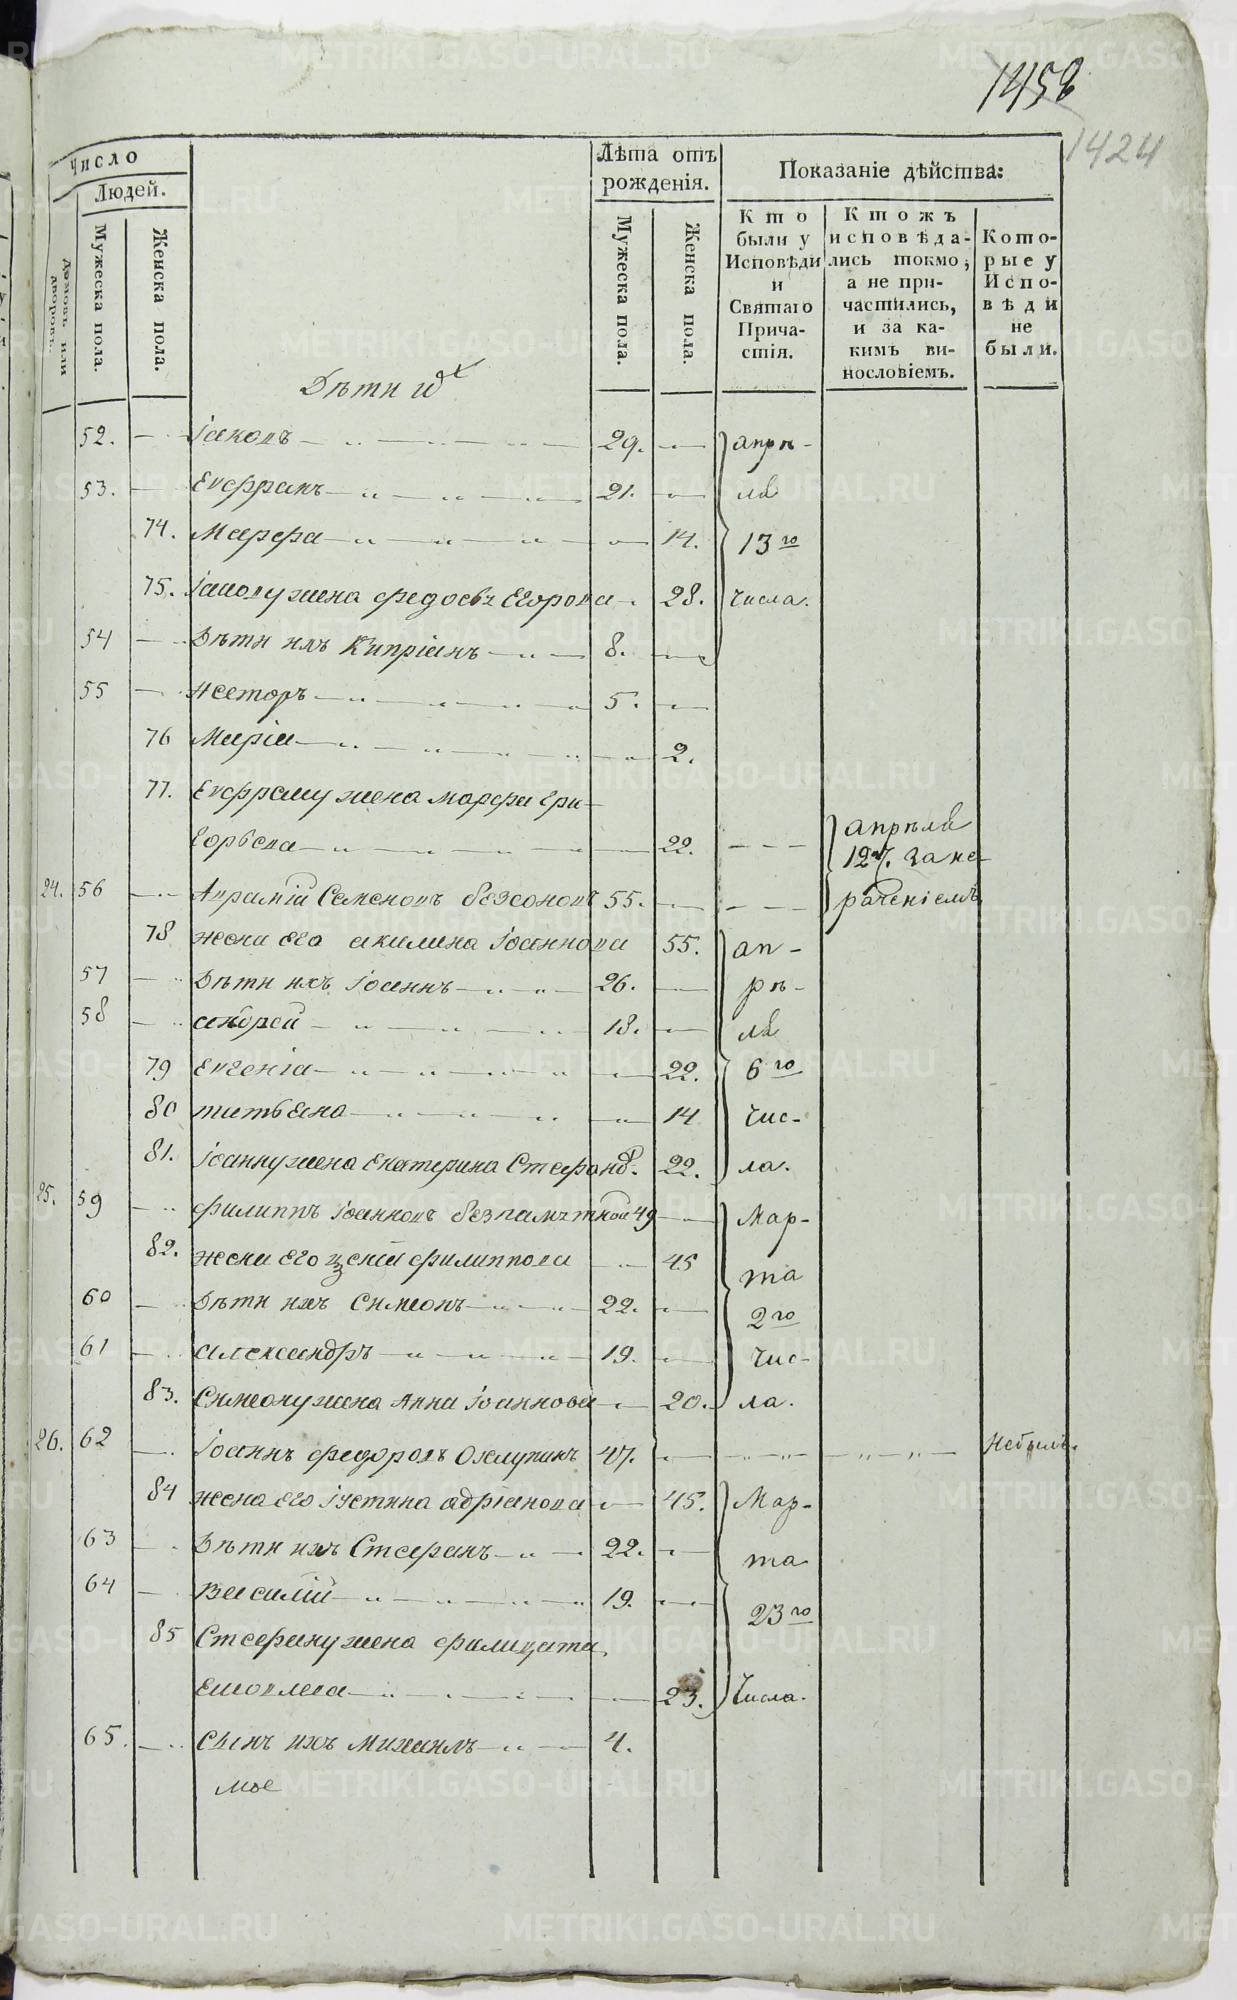 1458
1424
Число
Людей.
домовъ или дворовъ.
Мужеска пола.
Женска пола.
Лѣта отъ рожденія.
Мужеска пола.
Женска пола.
Показаніе дѣйства:
Кто были у Исповѣди и Святаго Причастія.
Ктожъ исповѣдались токмо, а не причастились, и за какимъ винословіемъ.
Которые у Исповѣди не были.
Дѣти их
52. Іаковъ 29. апрѣ-
53. Евфранъ 21. ля
74. Марфа 14. 13го
75. Іакову жена федосья Егорова 28. числа.
54 Дѣти ихъ Кипріанъ 8.
55 Несторъ 5.
76 Марія 2.
77. Евфрану жена марфа гри-
горьева 22. апрѣля 12 ч. за не-
24. 56 Аврамій Семеновъ безсоновъ 55. раченіемъ
78 жена его акилина Іоаннова 55. ап-
57 Дѣти ихъ Іоаннъ 26. рѣ-
58 андрей 18. ля
79 Евгенія 22. 6го
80 татьяна 14 чис-
81. Іоанну жена Екатерина Стефанов. 22. ла.
25. 59 филиппъ Іоанновъ безпамѣтной 49 Мар-
82. жена его ксенія филиппова 45 та
60 Дѣти ихъ Симеонъ 22. 2го
61 александръ 19. чис-
83. Симеону жена Анна Іоаннова 20. ла.
26. 62 Іоаннъ федоровъ Оклупинъ 47. Небылъ.
84 жена его Іустина адріанова 45. Мар-
63 Дѣти ихъ Стефанъ 22. та
64 Василій 19. 23го
85 Стефану жена филицата
23. числа.
65. Сынъ ихъ михаилъ 4.